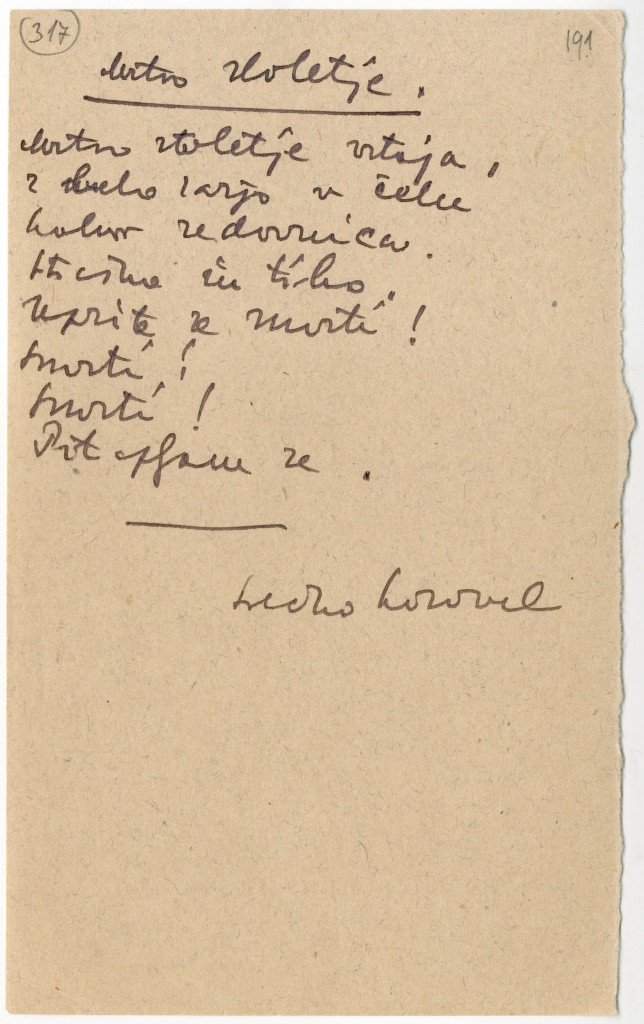 317
191
Mrtvo stoletje.
Mrtvo stoletje vstaja,
z zarjo v čelu
kakor redovnica.
Strašno in tiho.
Uprite se smrti!
Smrti!
Smrti!
se.
Srečko Kosovel